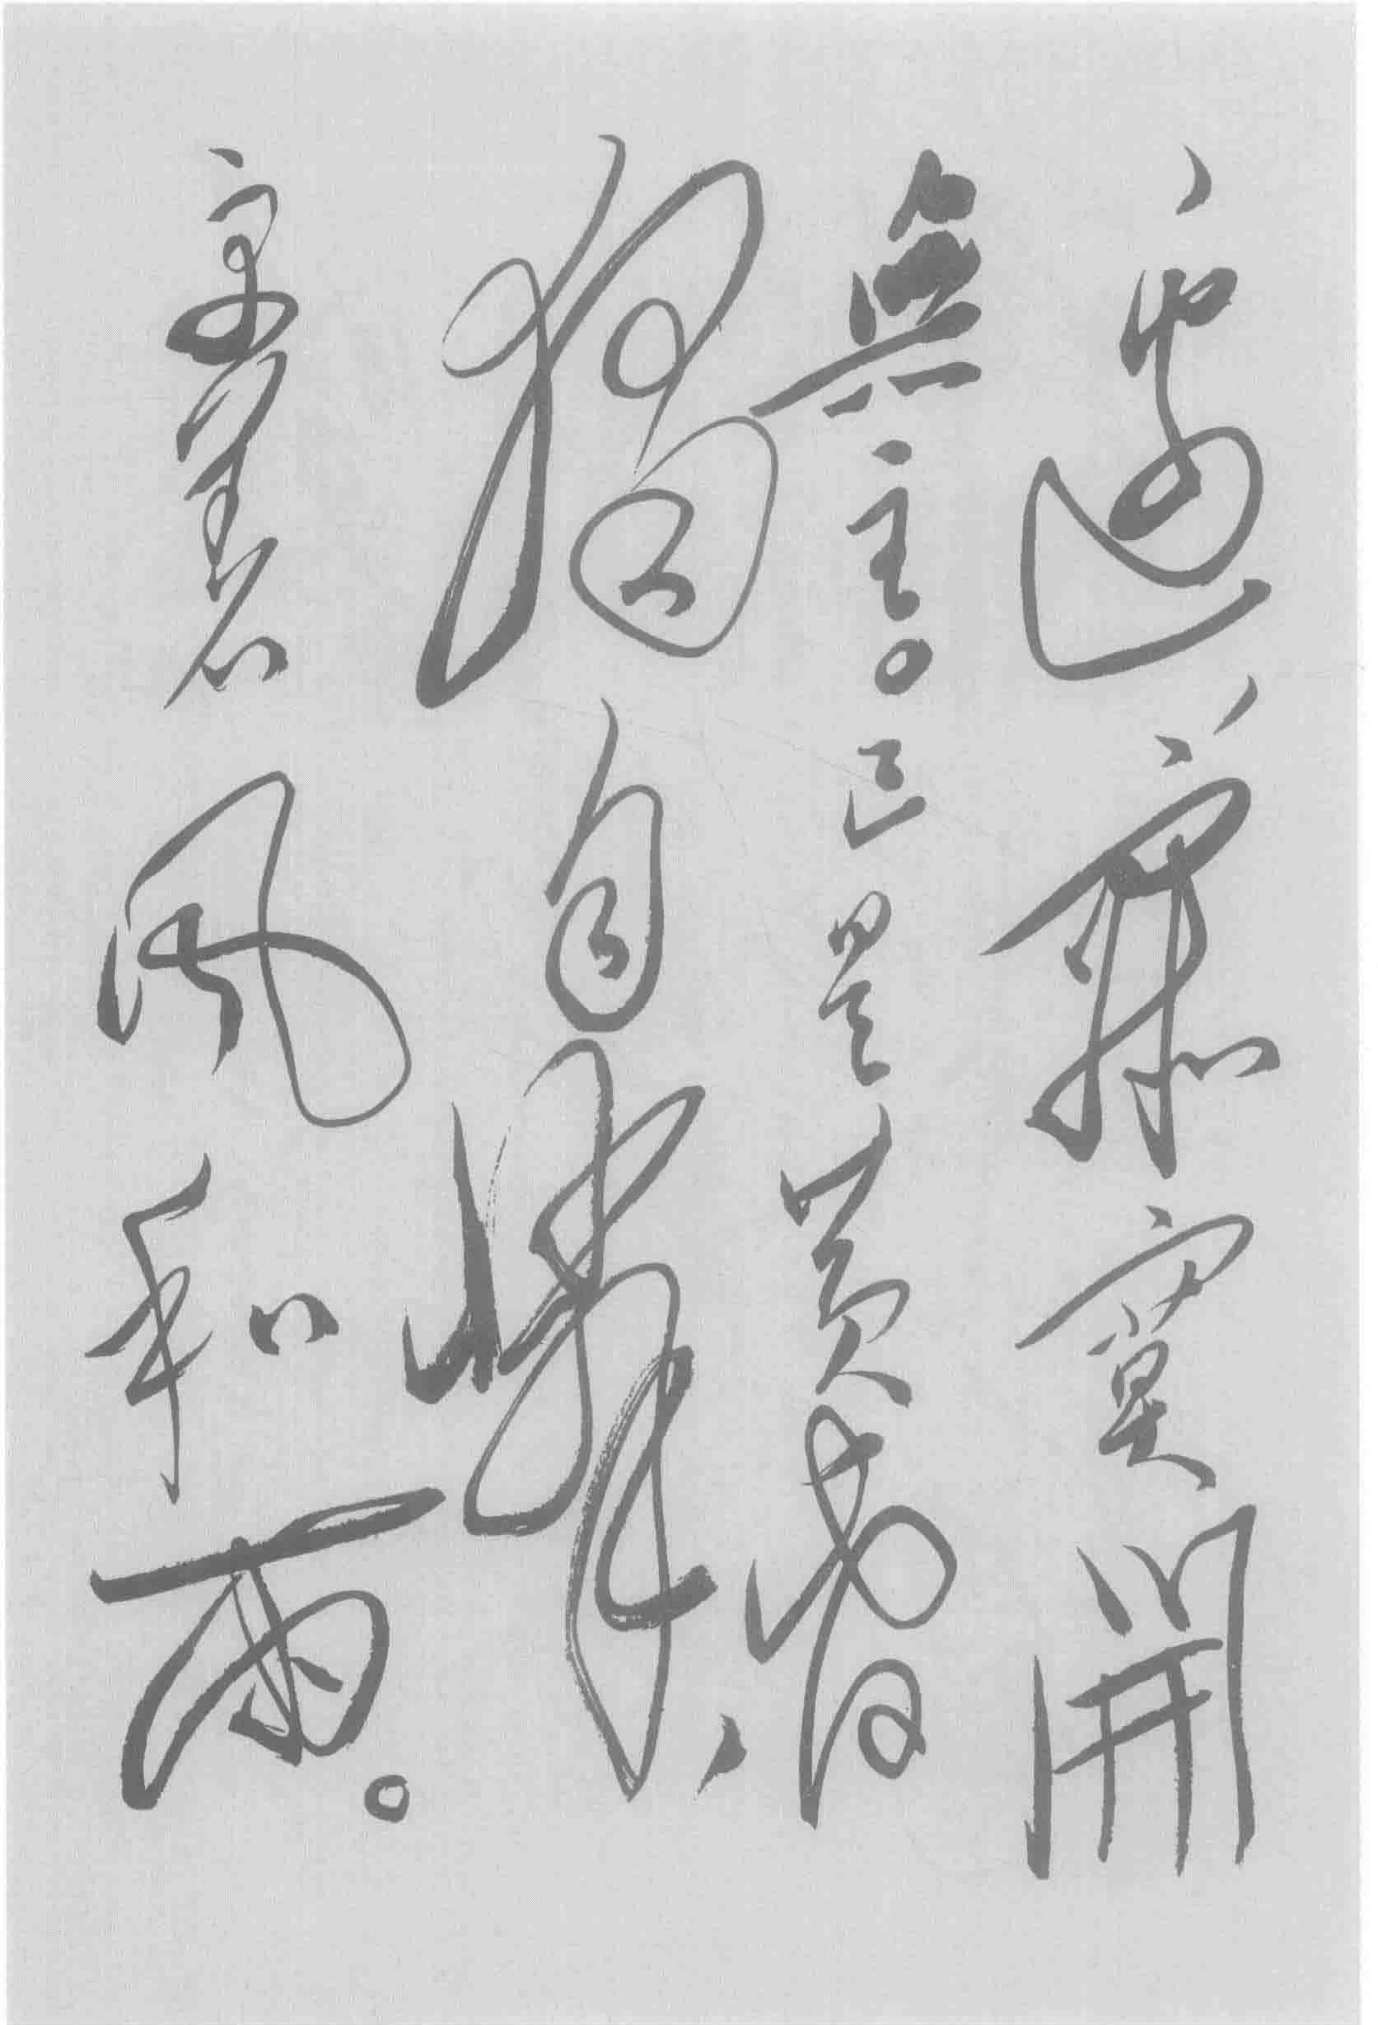 邊、寂寞開
無主。已是黃昏
獨自愁、
更著風和雨。